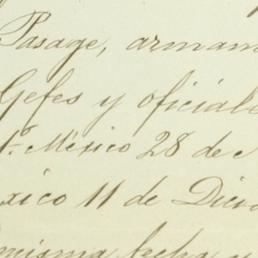 Pasage, armam
Gefes y oficiale
1º. México 28 de
xico 11 de Dici
misma fecha y